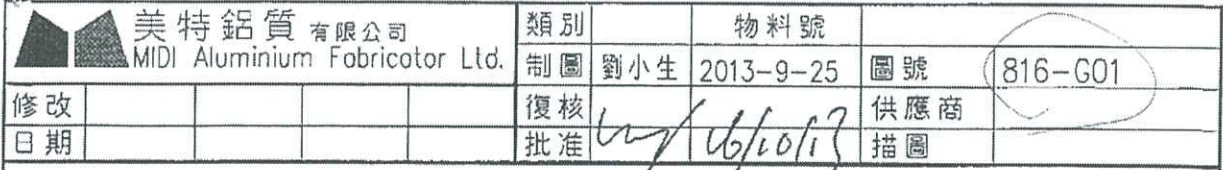 美特鋁質有限公司
MIDI Aluminium Fabricator Ltd.
類別 物料號
制圖 劉小生 2013-9-25 圖號 816-G01
修改 復核 供應商
日期 批准 16/10/13 描圖